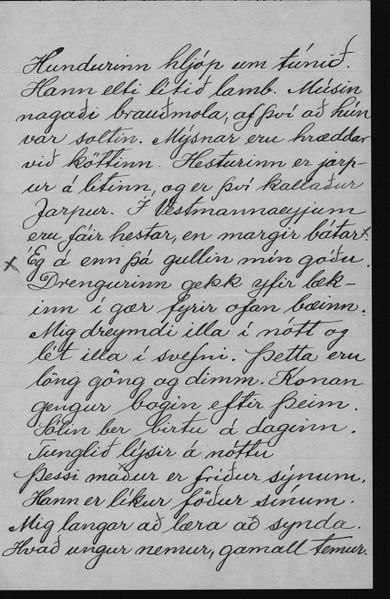 Hundurinn hljóp um túnið.
Hann elti lítið lamb. Músin
nagaði brauðmola, af því að hún
var soltin. Mýsnar eru hræddar
við köttinn. Hesturinn er jarp-
ur á litinn, og er því kallaður
Jarpur. Í Vestmannaeyjum
eru fáir hestar, en margir bátar.
Eg á enn þá gullin mín góðu.
Drengurinn gekk yfir læk-
inn í gær fyrir ofan bæinn.
Mig dreymdi illa í nótt og
lét illa í svefni. Þetta eru
löng göng og dimm. Konan
gengur bogin eftir þeim.
Sólin ber birtu á daginn.
Tunglið lýsir á nóttu
Þessi maður er fríður sýnum.
Hann er líkur föður sínum.
Mig langar að læra að synda.
Hvað ungur nemur, gamall temur.